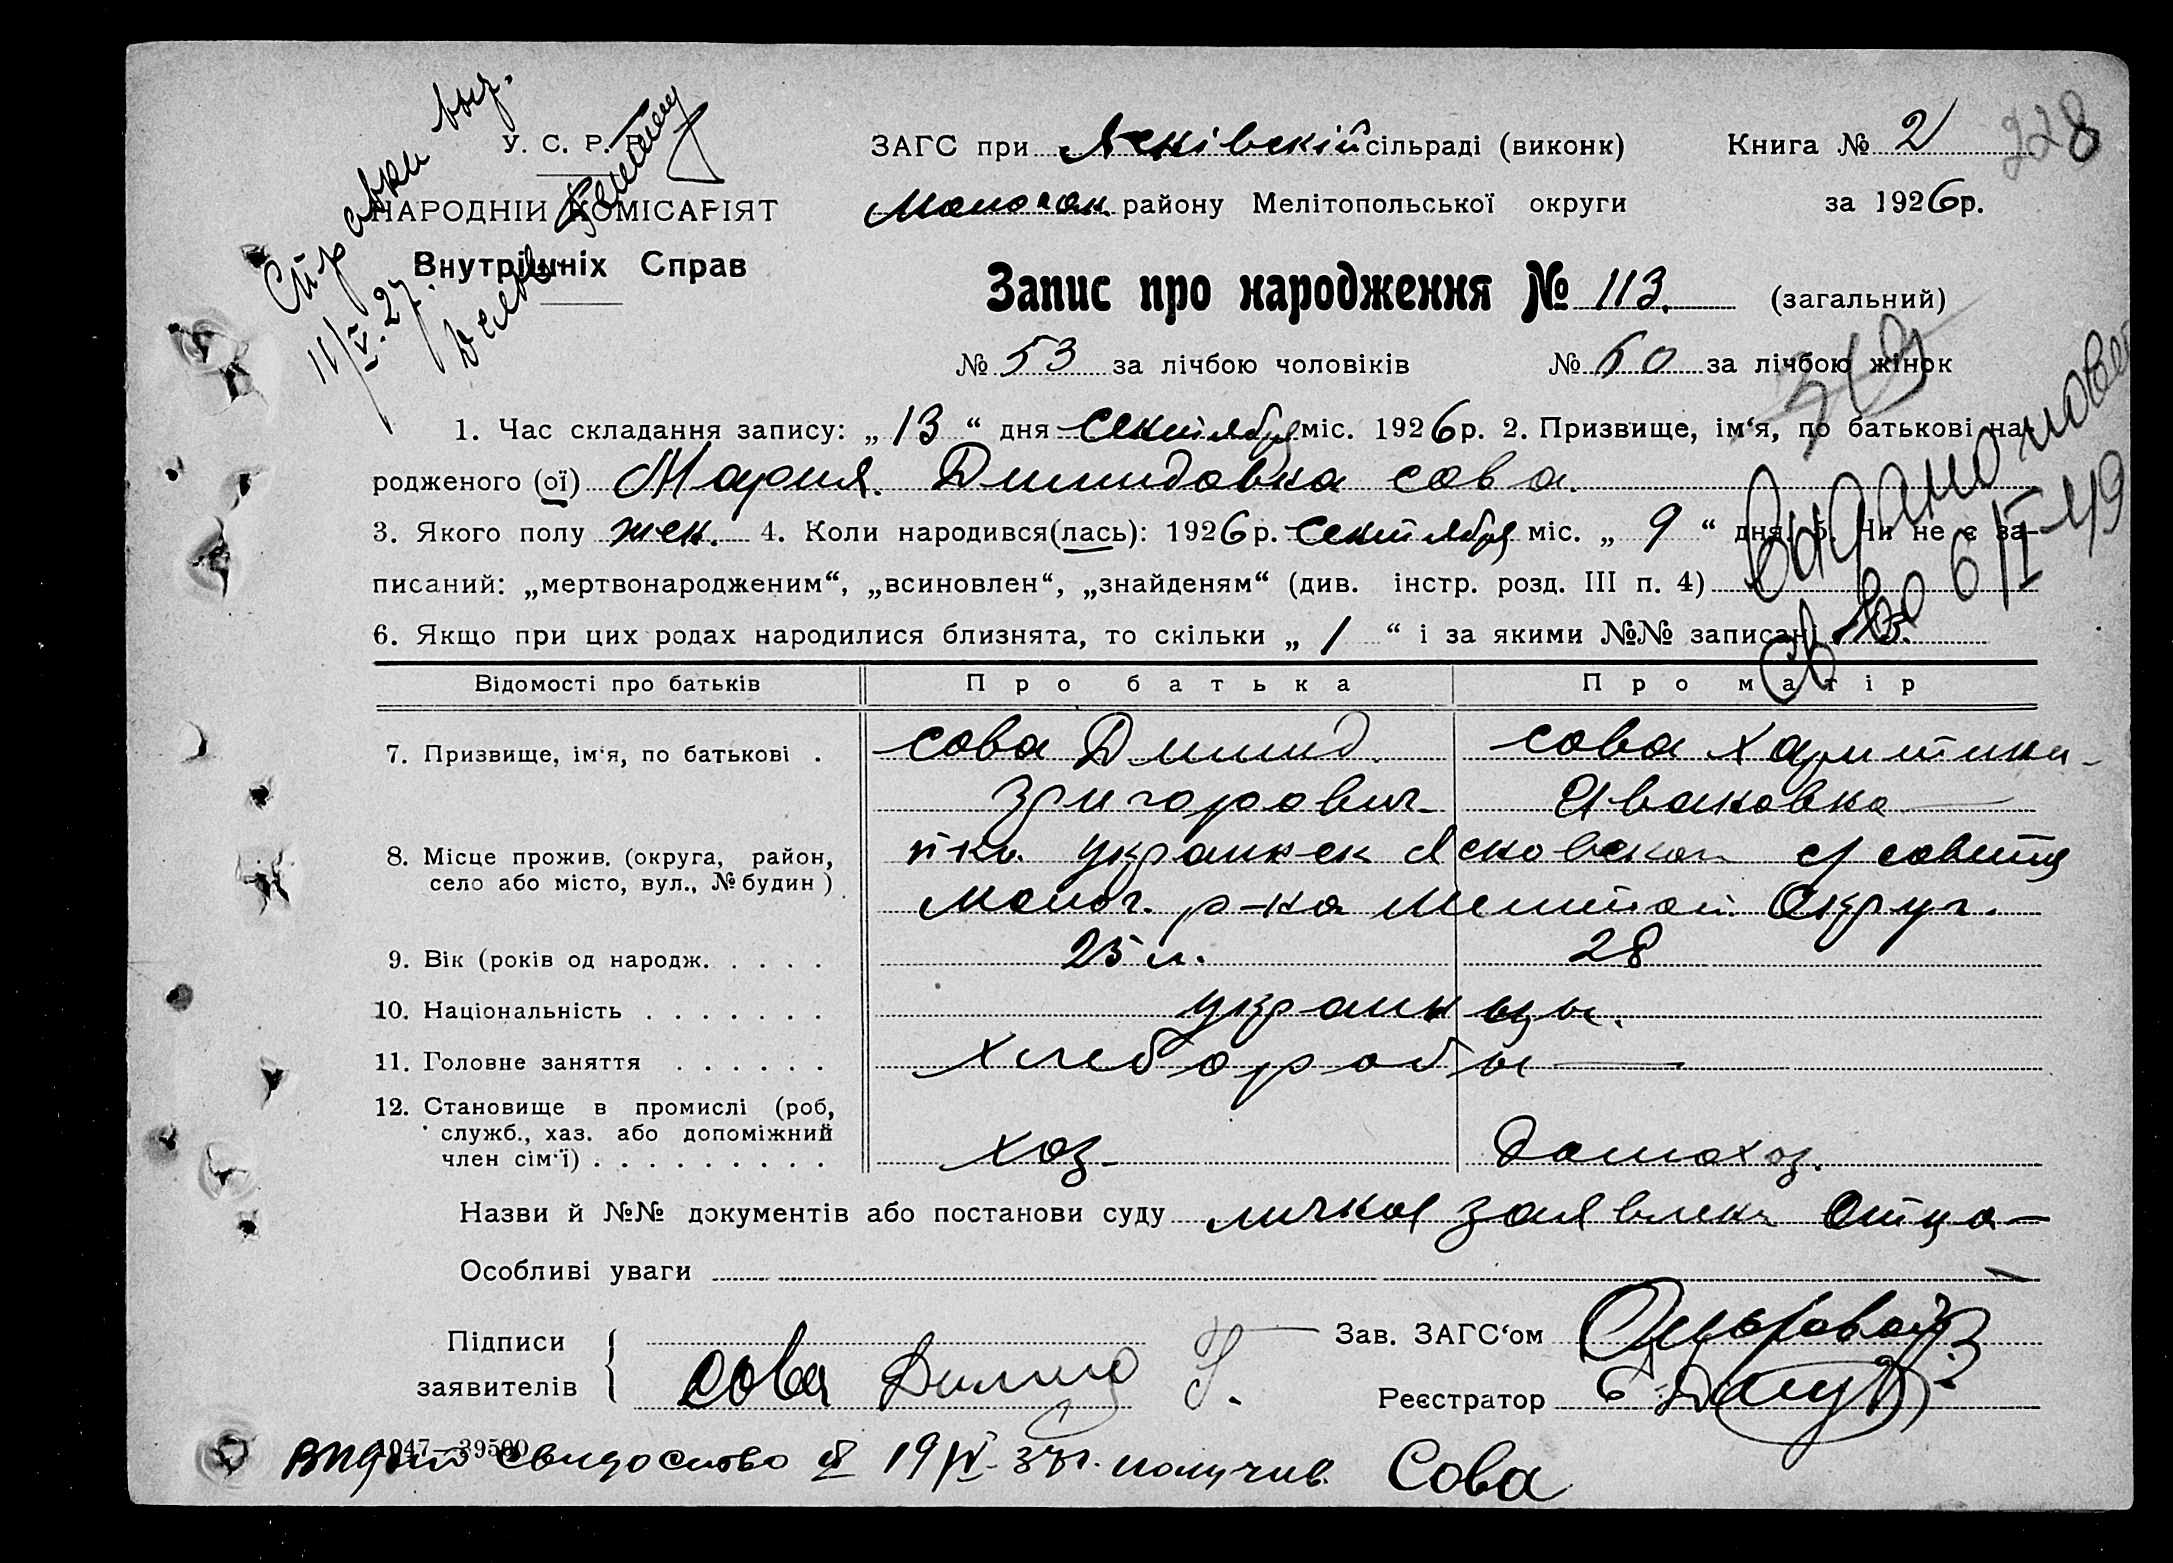 Справки выд.
11/V.27.
У. С. Р. Р.
НАРОДНІЙ КОМІСАРІЯТ
Внутрішніх Справ
ЗАГС при Яснівській сільраді (виконк) Книга № 2 228
району Мелітопольської округи за 1926р.
Запис про народження № 113. (загальний)
№ 53 за лічбою чоловіків № 60 за лічбою жінок
1. Час складання запису: „ 13 “ дня сентября міс. 1926р. 2. Призвище, ім‘я, по батькові на-
родженого (ої) Мария. Димидовна сова.
3. Якого полу жен. 4. Коли народився(лась): 1926р. сентября міс. „ 9 “ дня. 5. Чи не є за-
писаний: „мертвонародженим“, „всиновлен“, „знайденям“ (див. інстр. розд. III п. 4)
Выдано повт
св во 6/I-49
6. Якщо при цих родах народилися близнята, то скільки „ 1 “ і за якими №№ записані 113.
Відомості про батьків Про батька Про матір
7. Призвище, ім‘я, по батькові . сова Димид. сова Харитина
Григорович Ивановна
8. Місце прожив. (округа, район, село або місто, вул., № будин) украинск Ясновской с/совета
Молоч. р-на Мелитоп. Округ.
9. Вік (років од народж. . . . . 25 л. 28
10. Національність . . . . . . . украинцы.
11. Головне заняття . . . . . . хлеборобы
12. Становище в промислі (роб, служб., хаз. або допоміжний член сім‘ї) . . . . . . . . . хоз. домохоз.
Назви й №№ документів або постанови суду личное заявлен Отца
Особливі уваги
Підписи заявителів Сова Димид Г.
Зав. ЗАГС‘ом
Реєстратор
1047—39500
видано свидоство 19/IV-37г. получив. Сова